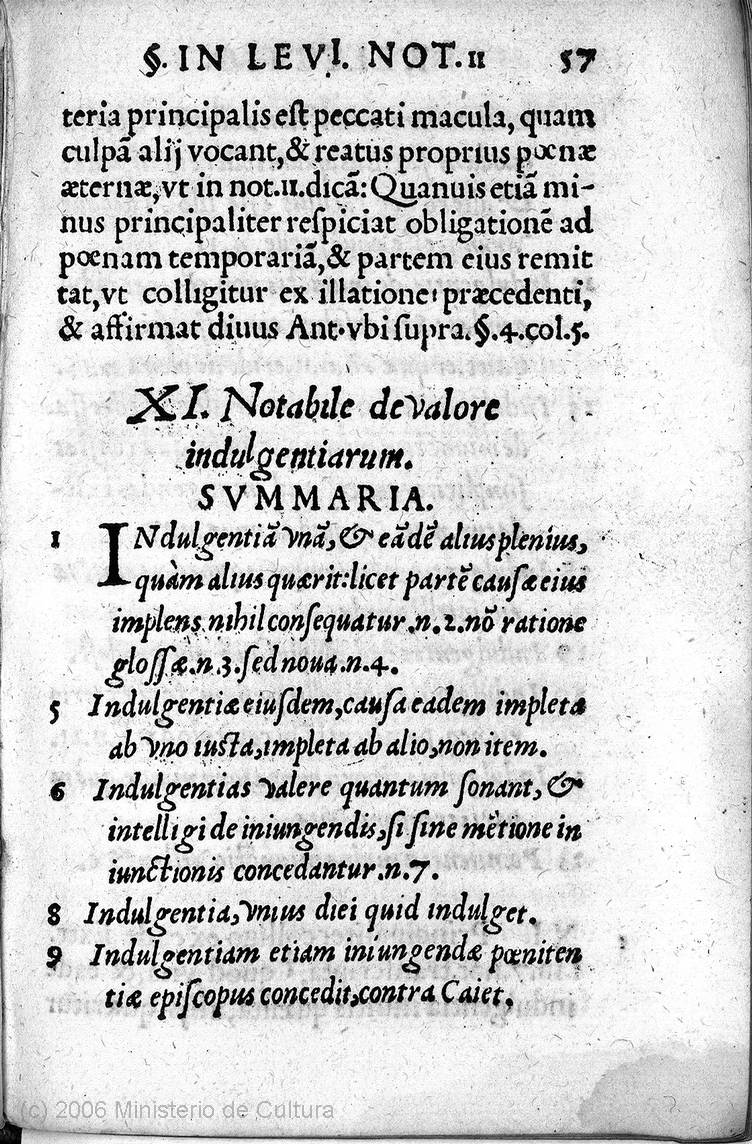 §. IN LEVI. NOT. II 57
teria principalis est peccati macula, quam
culpã alij vocant, & reatus proprius pœnæ
æternæ, vt in not. II. dicã: Quanuis etiã mi-
nus principaliter respiciat obligationẽ ad
pœnam temporariã, & partem eius remit
tat, vt colligitur ex illatione præcedenti,
& affirmat diuus Ant. vbi supra. §. 4. col. 5.
XI. Notabile de valore
indulgentiarum.
SVMMARIA.
1 INdulgentiã vnã, & eãdẽ alius plenius,
quàm alius quærit: licet partẽ causæ eius
implens nihil consequatur. n. 2. nõ ratione
glossæ. n. 3. sed noua. n. 4.
5 Indulgentiæ eiusdem, causa eadem impleta
ab vno iusta, impleta ab alio, non item.
6 Indulgentias valere quantum sonant, &
intelligi de iniungendis, si sine mẽtione in
iunctionis concedantur. n. 7.
8 Indulgentia, vnius diei quid indulget.
9 Indulgentiam etiam iniungendæ pœniten
tiæ episcopus concedit, contra Caiet.
(c) 2006 Ministerio de Cultura